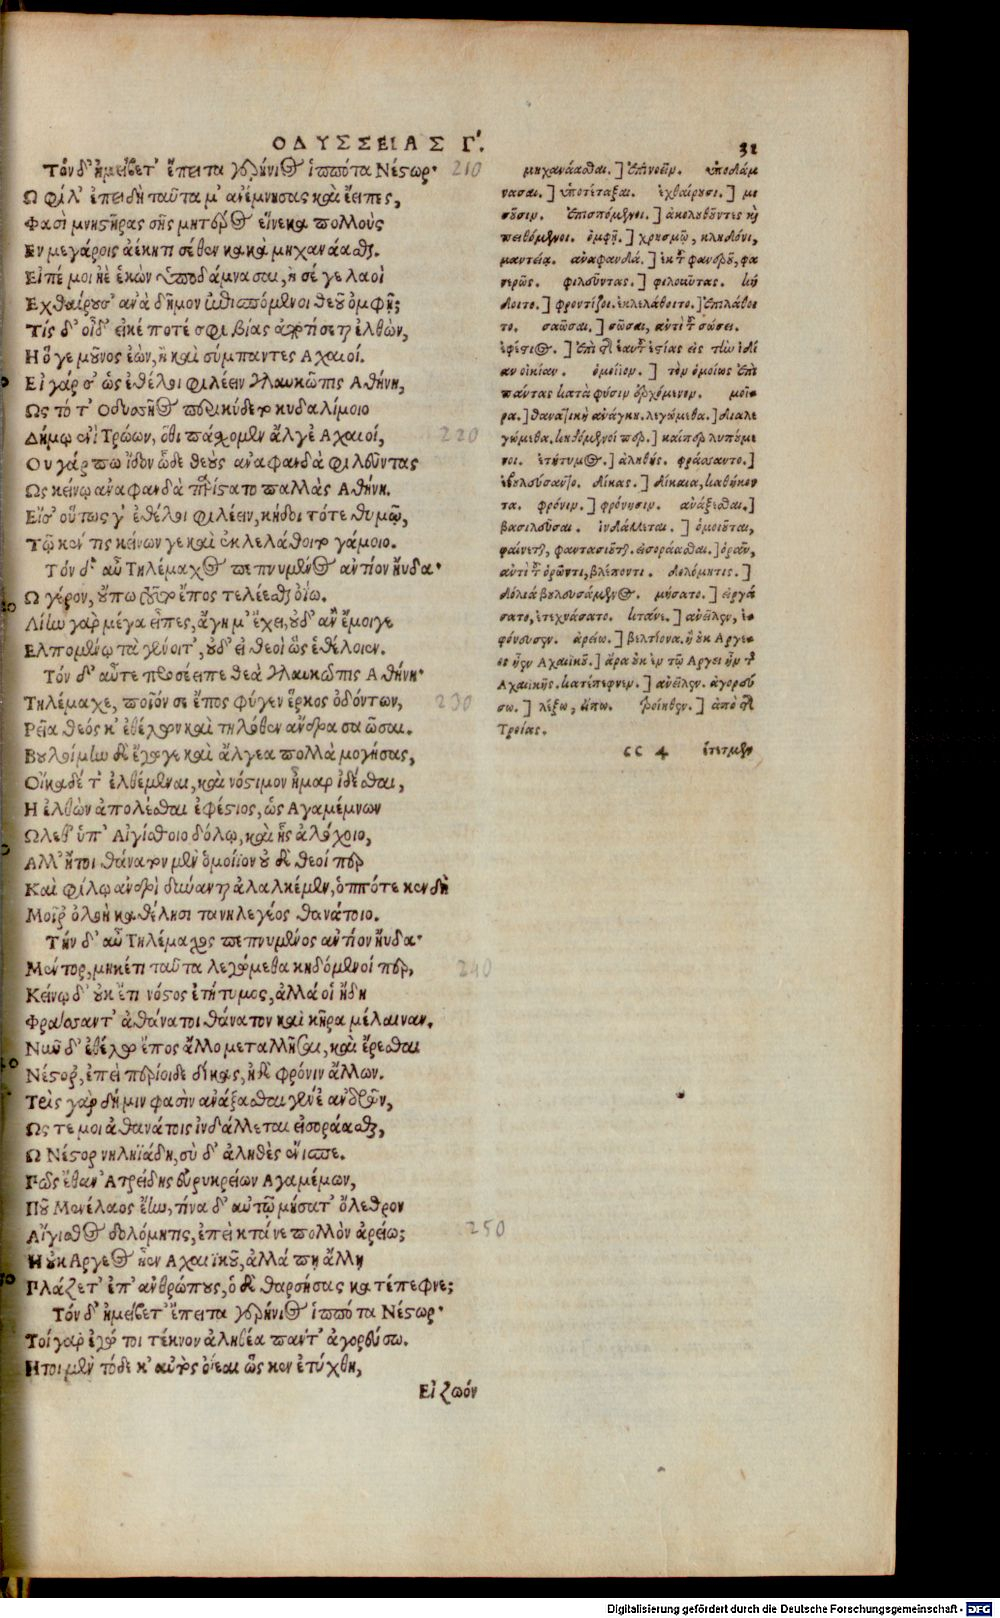 ΟΔΥΣΣΕΙΑΣ Γ. 31
Τόν δ' ἠμείβετ' ἔπειτα γερήνιος ἱππότα Νέστωρ· 210
Ω φίλ' ἐπεὶ δὴ ταῦτα μ' ἀνέμνησας καὶ ἔειπες,
Φασὶ μνηστῆρας σῆς μητέρος εἵνεκα πολλοὺς
Εν μεγάροις ἀέκητι σέθεν κακὰ μηχανάασθαι.
Εἰπέ μοι ἠὲ ἑκὼν ὑποδάμνασαι, ἦ σέ γε λαοὶ
Εχθαίρουσ' ἀνὰ δῆμον ἐπισπόμενοι θεοῦ ὀμφῇ;
Τίς δ' οἶδ' εἴκέ ποτέ σφι βίας ἀποτίσεται ἐλθών,
Η ὅγε μοῦνος ἐὼν, ἢ καὶ σύμπαντες Αχαιοί.
Εἰ γάρ σ' ὡς ἐθέλοι φιλέειν γλαυκῶπις Αθήνη,
Ως τό τ' Οδυσσῆος περικήδετο κυδαλίμοιο
Δήμῳ ἐνὶ Τρώων, ὅθι πάσχομεν ἄλγε' Αχαιοί, 220
Ου γάρ πω ἴδον ὧδε θεοὺς ἀναφανδὰ φιλεῦντας
Ως κείνῳ ἀναφανδὰ παρίστατο παλλὰς Αθήνη.
Εἴ σ' οὕτως γ' ἐθέλοι φιλέειν, κήδοιτό τε θυμῷ,
Τῷ κέν τις κείνων γε καὶ ἐκλελάθοιτο γάμοιο.
Τόν δ' αὖ Τηλέμαχος πεπνυμένος ἀντίον ἤυδα·
Ω γέρον, οὔπω τοῦτο ἔπος τελέεσθαι ὀΐω.
Λίην γὰρ μέγα εἶπες, ἄγη μ' ἔχει, οὐδ' ἂν ἔμοιγε
Ελπομένῳ τὰ γένοιτ', οὐδ' εἰ θεοὶ ὣς ἐθέλοιεν.
Τόν δ' αὖτε προσέειπε θεὰ γλαυκῶπις Αθήνη·
Τηλέμαχε, ποῖόν σε ἔπος φύγεν ἕρκος ὀδόντων, 230
Ρεῖα θεός κ' ἐθέλων καὶ τηλόθεν ἄνδρα σαῶσαι.
Βουλοίμην δὲ ἔγωγε καὶ ἄλγεα πολλὰ μογήσας,
Οἴκαδέ τ' ἐλθέμεναι, καὶ νόστιμον ἦμαρ ἰδέσθαι,
Η ἐλθὼν ἀπολέσθαι ἐφέστιος, ὡς Αγαμέμνων
Ωλεθ' ὑπ' Αἰγίσθοιο δόλῳ, καὶ ἧς ἀλόχοιο,
Αλλ' ἤτοι θάνατον μὲν ὁμοίϊον οὐδὲ θεοί περ
Καὶ φίλῳ ἀνδρὶ δύνανται ἀλαλκέμεν, ὁππότε κεν δὴ
Μοῖρ' ὀλοὴ καθέλησι τανηλεγέος θανάτοιο.
Τήν δ' αὖ Τηλέμαχος πεπνυμένος ἀντίον ἤυδα·
Μέντορ, μηκέτι ταῦτα λεγώμεθα κηδόμενοί περ, 240
Κείνῳ δ' οὐκ ἔτι νόστος ἐτήτυμος, ἀλλά οἱ ἤδη
Φράσσαντ' ἀθάνατοι θάνατον καὶ κῆρα μέλαιναν.
Νῦν δ' ἐθέλω ἔπος ἄλλο μεταλλῆσαι, καὶ ἔρεσθαι
Νέστορ', ἐπεὶ περίοιδε δίκας, ἠδὲ φρόνιν ἄλλων.
Τρὶς γὰρ δή μιν φασὶν ἀνάξασθαι γένε' ἀνδρῶν,
Ως τέ μοι ἀθανάτοις ἰνδάλλεται εἰσοράασθαι,
Ω Νέστορ νηληϊάδη, σὺ δ' ἀληθὲς ἔνισπε.
Πῶς ἔθαν' Ατρείδης εὐρυκρείων Αγαμέμνων,
Ποῦ Μενέλαος ἔην, τίνα δ' αὐτῷ μήσατ' ὄλεθρον
Αἴγισθος δολόμητις, ἐπεὶ κτάνε πολλὸν ἀρείω; 250
Η οὐκ Αργεος ἦεν Αχαιϊκοῦ, ἀλλά πῃ ἄλλῃ
Πλάζετ' ἐπ' ἀνθρώπους, ὁ δὲ θαρσήσας κατέπεφνε;
Τόν δ' ἠμείβετ' ἔπειτα γερήνιος ἱππότα Νέστωρ·
Τοὶ γὰρ ἐγώ τοι τέκνον ἀληθέα πάντ' ἀγορεύσω.
Ητοι μὲν τόδε κ' αὐτὸς ὀΐεαι ὥς κεν ἐτύχθη,
Εἰ ζωόν
μηχανάασθαι.] ἐπινοεῖν. ὑποδάμ
νασαι.] ὑποτέταξαι. ἐχθαίρουσι.] μι
σοῦσιν. ἐπισπόμενοι.] ἀκολουθοῦντες καὶ
πειθόμενοι. ὀμφῇ.] χρησμῷ, κληδόνι,
μαντείᾳ. ἀναφανδά.] ἐκ τοῦ φανεροῦ, φα
νερῶς. φιλεῦντας.] φιλοῦντας. κή
δοιτο.] φροντίζοι. ἐκλελάθοιτο.] ἐπιλάθοι
το. σαῶσαι.] σῶσαι, ἀντὶ τοῦ σώσει.
ἐφέστιος.] ἐπὶ τῆς ἑαυτοῦ ἑστίας εἰς τὴν ἰδί
αν οἰκίαν. ὁμοίϊον.] τὸν ὁμοίως ἐπὶ
πάντας κατὰ φύσιν ἐρχόμενον. μοῖ
ρα.] θανατικὴ ἀνάγκη. λεγώμεθα.] διαλε
γώμεθα. κηδόμενοί περ.] καίπερ λυπούμε
νοι. ἐτήτυμος.] ἀληθής. φράσσαντο.]
ἐβουλεύσαντο. δίκας.] δίκαια, καθήκον
τα. φρόνιν.] φρόνησιν. ἀνάξασθαι.]
βασιλεῦσαι. ἰνδάλλεται.] ὁμοιοῦται,
φαίνεται, φαντασιοῦται. εἰσοράασθαι.] ὁρᾶν,
ἀντὶ τοῦ ὁρῶντι, βλέποντι. δολόμητις.]
δόλια βουλευσάμενος. μήσατο.] εἰργά
σατο, ἐτεχνάσατο. κτάνε.] ἀνεῖλεν, ἐ
φόνευσεν. ἀρείω.] βελτίονα. ἢ οὐκ Αργε
ος ἦεν Αχαιϊκοῦ.] ἆρα οὐκ ἐν τῷ Αργει ἦν τῆς
Αχαιικῆς. κατέπεφνεν.] ἀνεῖλεν. ἀγορεύ
σω.] λέξω, εἴπω. Τροίηθεν.] ἀπὸ τῆς
Τροίας.
cc 4 ἔτετμεν
Digitalisierung gefördert durch die Deutsche Forschungsgemeinschaft - DFG